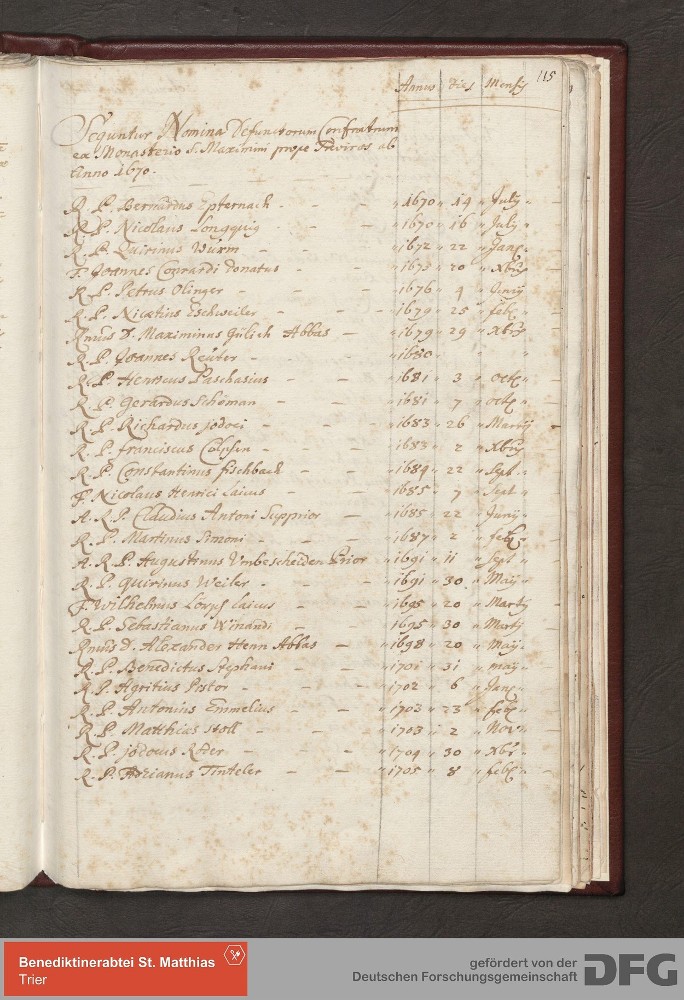 115
Annus Dies Mensis
Sequntur Nomina Defunctorum Confratrum
ex Monasterio S. Maximini prope Treviros ab
Anno 1670.
R. P. Bernardus Epternach - - - " 1670 " 14 " July "
R. P. Nicolaus Longquig - - - " 1670 " 16 " July "
R. P. Quirinus Würm - - - " 1672 " 22 " Jan "
F. Joannes Conrardi Donatus - - " 1673 " 20 " Xbris
R. P. Petrus Olinger - - - " 1676 " 4 " Junij
R. P. Nicetius Eschweiler - - - " 1679 " 25 " feb "
Rmus D. Maximinus Gülich Abbas - " 1679 " 29 " Xbris
R. P. Joannes Reuter - - - " 1680 " " "
R. P. Henricus Paschasius - - " 1681 " 3 " octb "
R. P. Gerardus Schöman - - " 1681 " 7 " octb "
R. P. Richardus Jodoci - - - " 1683 " 26 " Martij
R. P. franciscus Colpen - - - " 1683 " 2 " Xbris
R. P. Constantinus fischbach - - " 1684 " 22 " Sept "
F. Nicolaus Henrici Laicus - - " 1685 " 7 " Sept "
A. R. P. Claudius Antoni Supprior - " 1685 " 22 " Junij "
R. P. Martinus Simoni - - - " 1687 " 2 " feb "
A. R. P. Augustinus Umbescheiden Prior " 1691 " 11 " Sept "
R. P. Quirinus Weiler - - - " 1691 " 30 " Maij "
F. Wilhelmus Laicus - - " 1695 " 20 " Martij
R. P. Sebastianus Winandi - - " 1695 " 30 " Martij
Rmus D. Alexander Henn Abbas - - " 1698 " 20 " Maij
R. P. Benedictus Stephani - - " 1701 " 31 " maij "
R. P. Agritius Pistor - - - " 1702 " 6 " Jan "
R. P. Antonius Emmelius - - " 1703 " 23 " feb "
R. P. Matthias Stoll - - - " 1703 " 2 " Nov "
R. P. Jodocus Röder - - - " 1704 " 30 " Xbr "
R. P. Adrianus Tinteler - - " 1705 " 8 " feb "
Benediktinerabtei St. Matthias
Trier
gefördert von der
Deutschen Forschungsgemeinschaft DFG